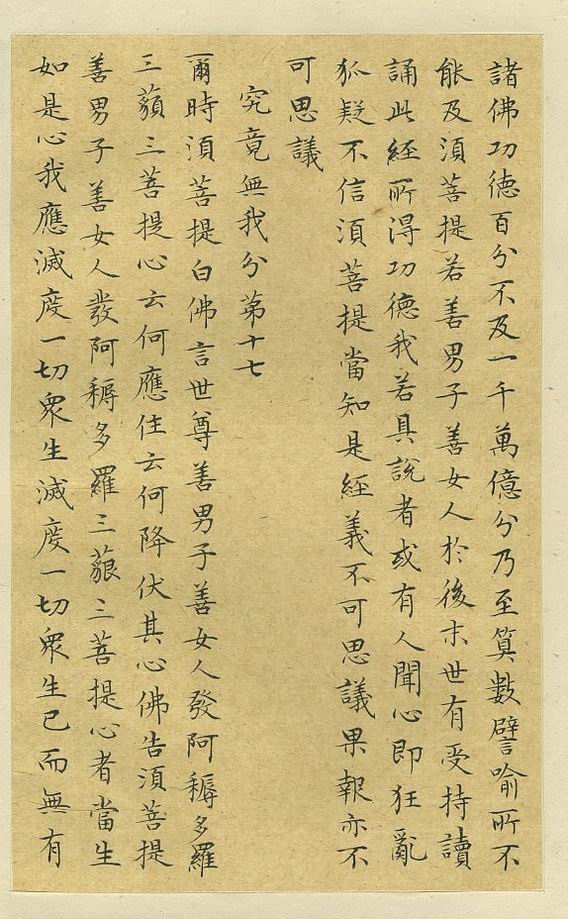 諸佛功德百分不及一千萬億分乃至算數譬喻所不
能及須菩提若善男子善女人於後末世有受持讀
誦此經所得功德我若具說者或有人聞心即狂亂
狐疑不信須菩提當知是經義不可思議果報亦不
可思議
究竟無我分第十七
爾時須菩提白佛言世尊善男子善女人發阿耨多羅
三藐三菩提心云何應住云何降伏其心佛告須菩提
善男子善女人發阿耨多羅三藐三菩提心者當生
如是心我應滅度一切眾生滅度一切眾生已而無有